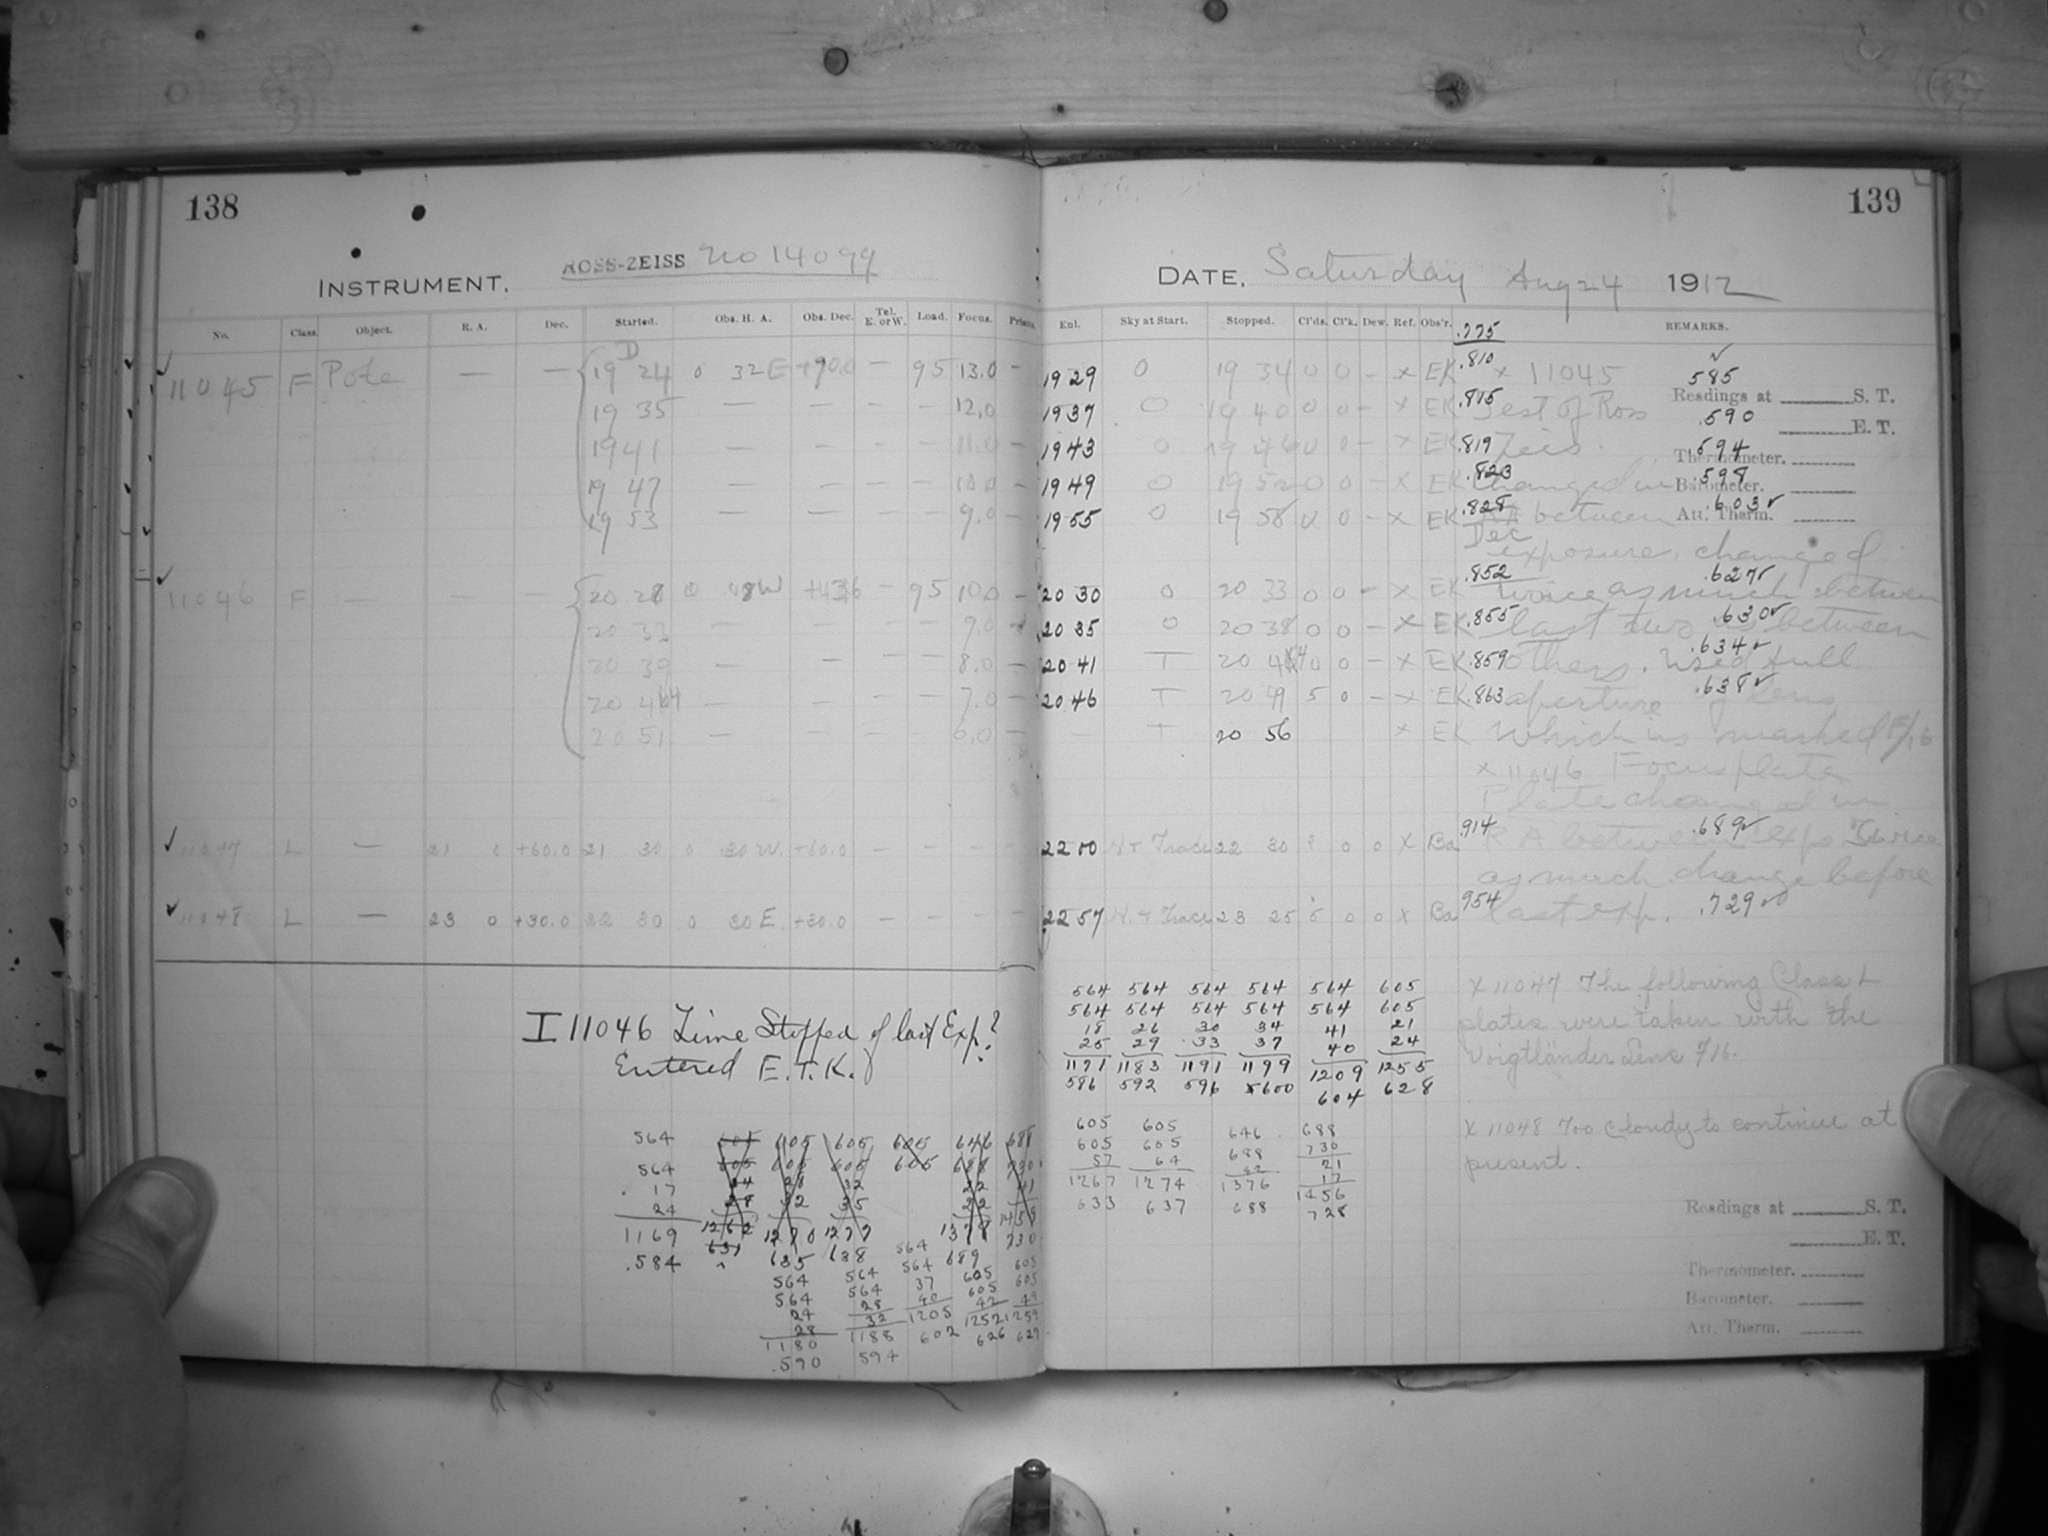 138
INSTRUMENT. ROSS-ZEISS No 14099
No. Class. Object. R. A. Dec. Started. Obs. H. A. Obs. Dec. Tel. E. or W. Load. Focus. Prisms.
11045 F Pole — — 19 24 0 32E +90.0 — 95 13.0 —
19 35 — — — — 12.0
19 41 — — — — 11.0 —
19 47 — — — — 10.0 —
19 53 — — — — 9.0 —
11046 F — — — 20 28 0 08W — 95 10.0 —
20 33 — — — — 9.0 —
20 39 — — — — 8.0 —
20 44 — — — — 7.0 —
20 51 — — — — 6.0 —
11047 L — 21 0 +60.0 21 30 0 30 W. +60.0 — — — —
11048 L — 23 0 +30.0 22 30 0 30 E. +30.0 — — — —
I 11046 Time Stopped of last Exp?
Entered E.T.K.
564
564
17
24
1169
.584
564
564
24
28
1180
.590
564
564
28
32
1188
594
564
564
37
40
1205
602
605
605
47
1252
626
605
605
49
1259
629
139
DATE. Saturday Aug 24 1912
Enl. Sky at Start. Stopped. Cl'ds. Cl'k. Dew. Ref. Obs'r. REMARKS.
.775
19 29 0 19 34 0 0 — x EK .810 x 11045 585
19 37 0 19 40 0 0 — x EK .815 Test of Ross .590
19 43 0 19 46 0 0 — x EK .819 Zeis. 594
19 49 0 19 52 0 0 — x EK .823 changed in .598
19 55 0 19 58 0 0 — x EK .828 between .603
Dec
exposure, changed
20 30 0 20 33 0 0 — x EK .852 twice as much between .627
20 35 0 20 38 0 0 — x EK .855 last two as between .630
20 41 T 20 44 0 0 — x EK .859 others. Used full .634
20 46 T 20 49 5 0 — x EK .863 aperture of lens .638
T 20 56 x EK which is marked F/16
x 11046 Focus plate
Plate changed in
22 00 N + Trace 22 30 0 0 x Ba 914 R A between expo Twice .689
as much change before
22 57 N. + Trace 23 25 0 0 x Ba 954 last exp. .729
Readings at S. T.
E. T.
Thermometer.
Barometer.
Att. Therm.
564 564 564 564 564 605
564 564 564 564 564 605
18 26 30 34 41 21
25 29 33 37 40 24
1171 1183 1191 1199 1209 1255
586 592 596 600 604 628
605 605 646 688
605 605 688 730
57 64 42 21
1267 1274 1376 17
633 637 688 1456
728
x 11047 The following Class L
plates were taken with the
Voigtländer Lens
x 11048 Too cloudy to continue at
present.
Readings at S. T.
E. T.
Thermometer.
Barometer.
Att. Therm.